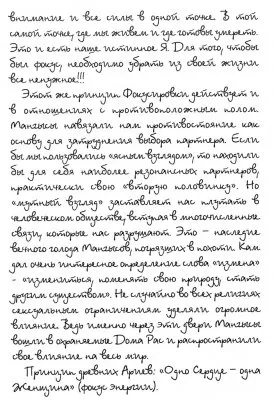 внимание и все силы в одной точке. В той
самой точке, где мы живем и где готовы умереть.
Это и есть наше истинное Я. Для того, чтобы
был фокус, необходимо убрать из своей жизни
все ненужное!!!
Этот же принцип Фокусировки действует и
в отношениях с противоположным полом.
Мангысы навязали нам противостояние как
основу для затруднения выбора партнера. Если
бы мы пользовались «ясным взглядом», то находили
бы для себя наиболее резонансных партнеров,
практически свою «вторую половинку». Но
«мутный взгляд» заставляет нас плутать в
человеческом обществе, вступая в многочисленные
связи, которые нас разрушают. Это – наследие
вечного голода Мангысов, погрязших в похоти. Кам
дал очень интересное определение слова «измена»
- «измениться, поменять свою природу, стать
другим существом». Не случайно во всех религиях
сексуальным ограничениям уделяли огромное
влияние. Ведь именно через эти двери Мангысы
вошли в охраняемые Дома Рас и распространили
свое влияние на весь мир.
Принцип древних Ариев: «Одно Сердце – одна
Женщина» (фокус энергии).